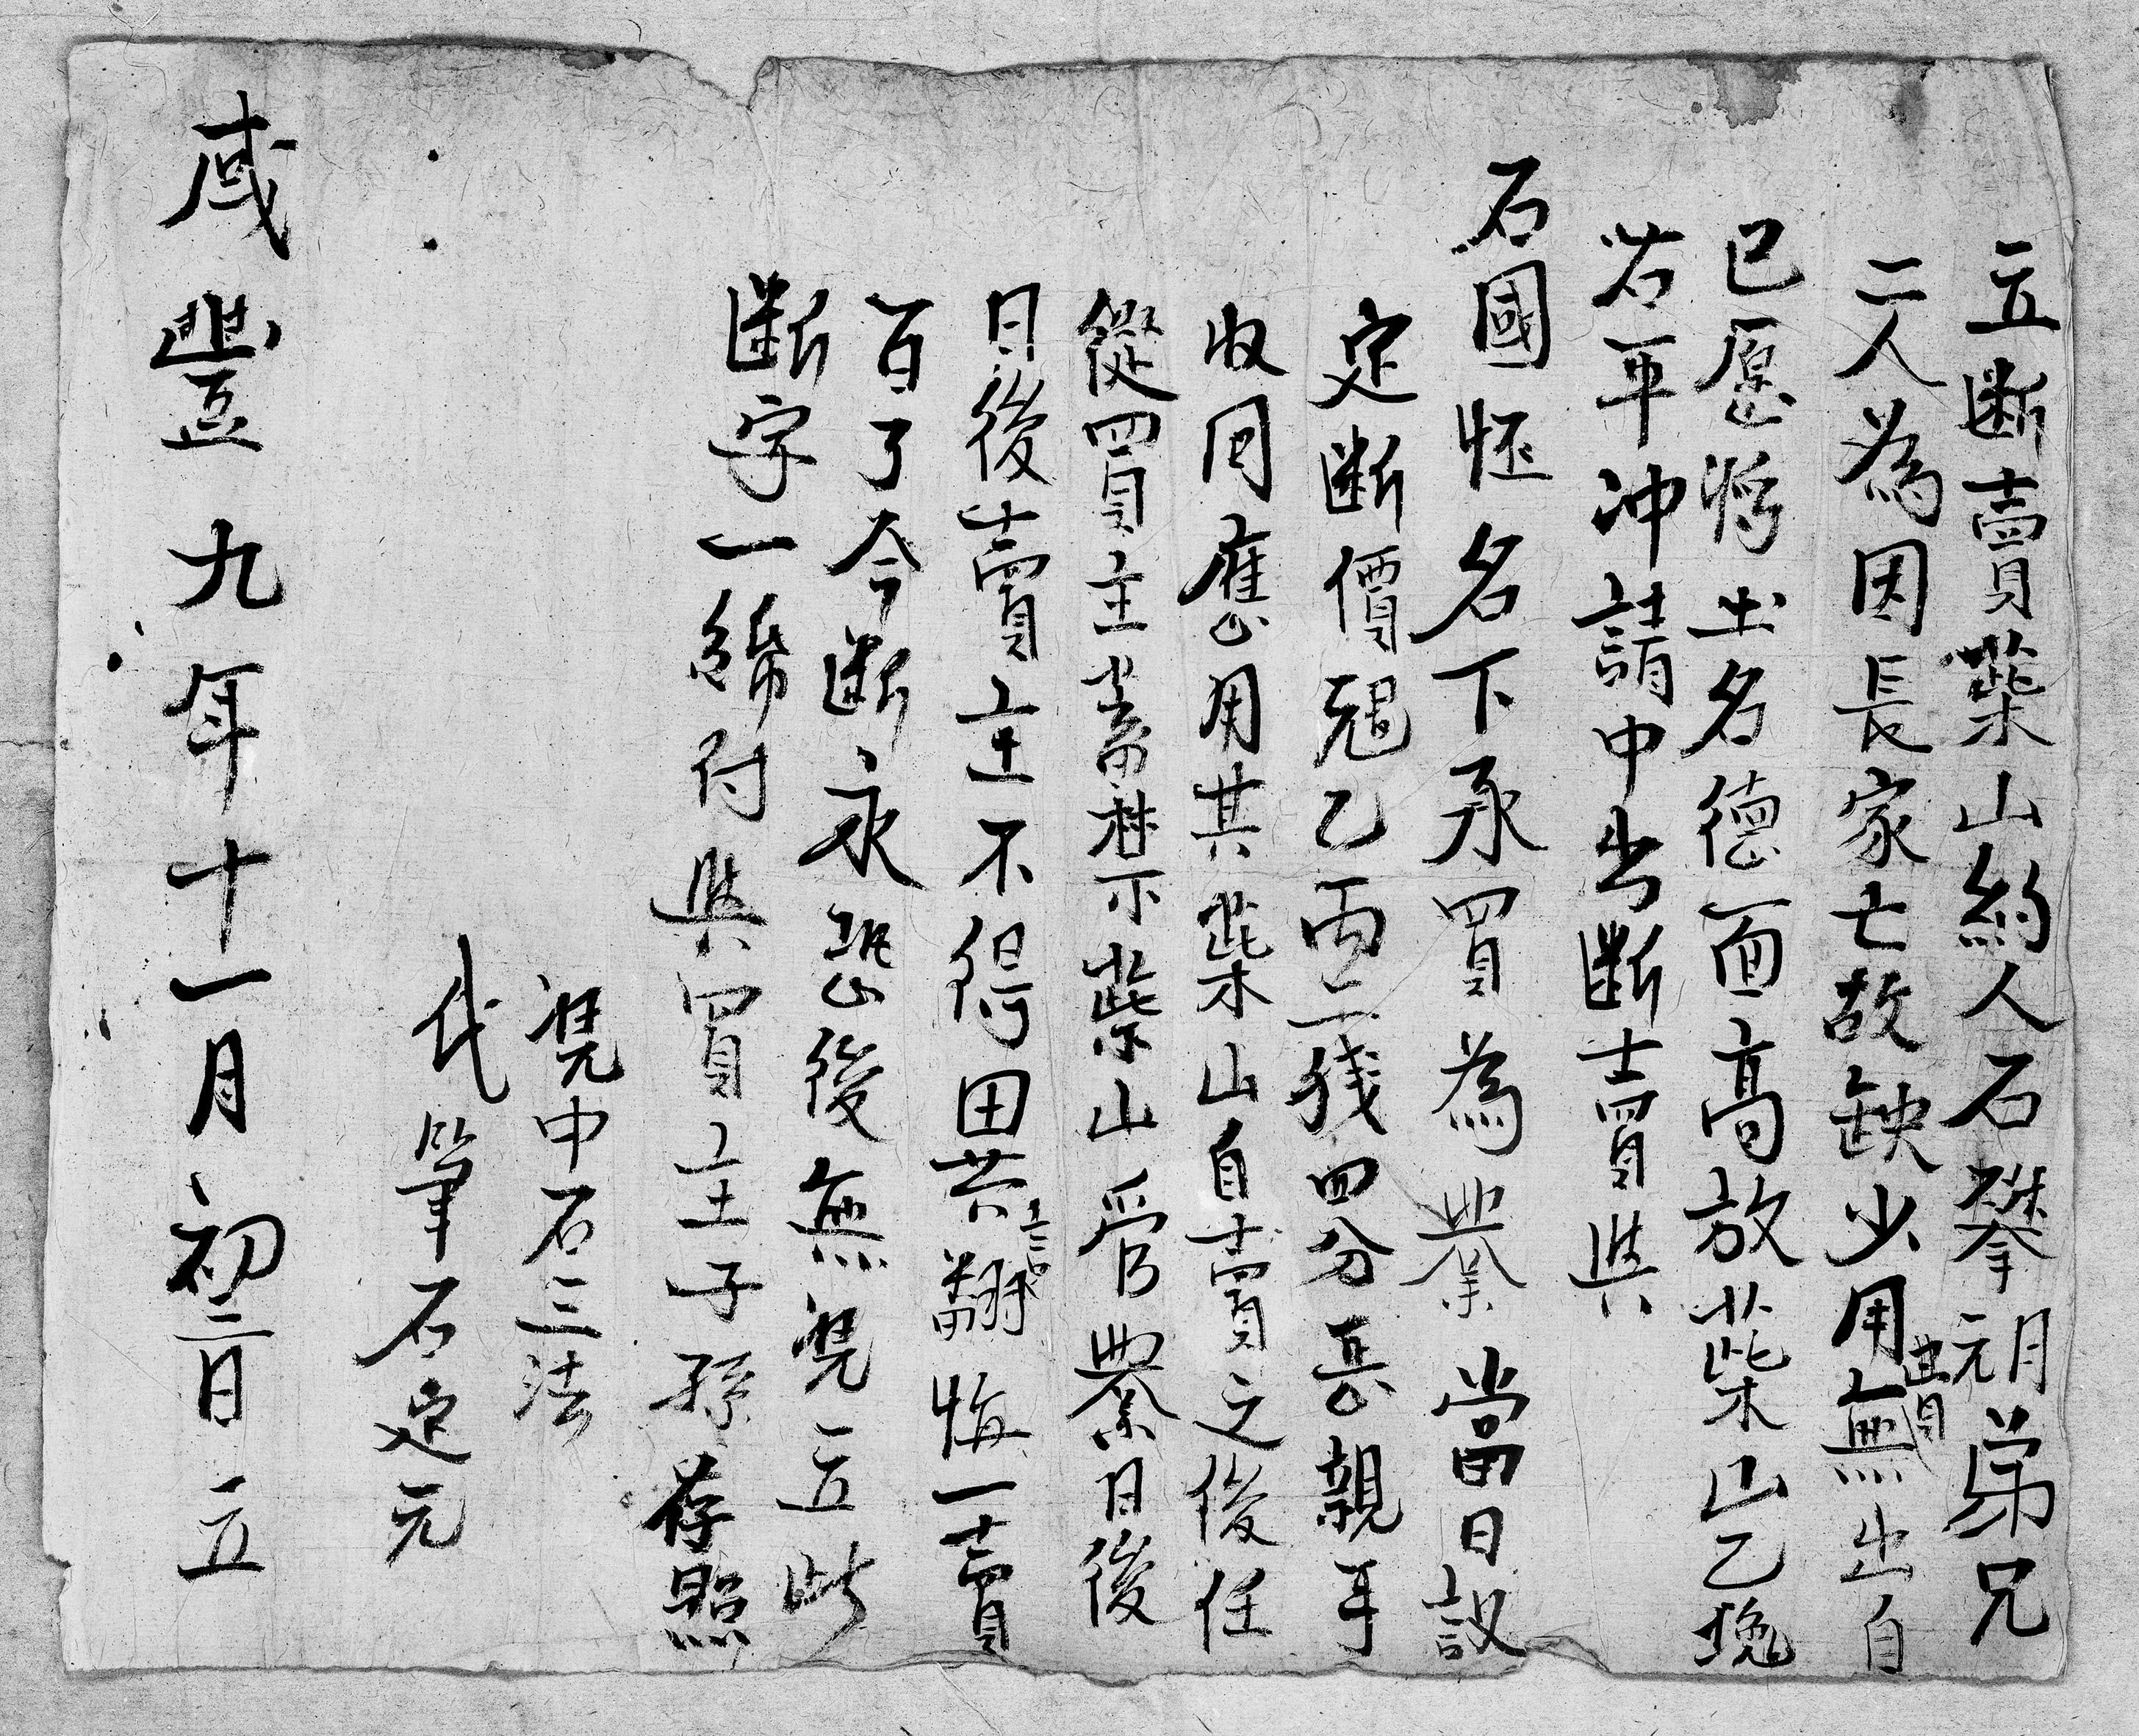 立断賣柴山約人石攀明元弟兄
二人為因長家亡故缺少用費無出自
已愿將土名德面高放柴山乙塊
岩平冲請中出断賣與
石國恠名下承買為業當日議
定断價尅乙両二錢四分長親手
收囘應用其柴山自賣之後任
從買主蓄禁柴山管業日後
日後賣主不得田共言翻悔一賣
百了今断永恐後無凴立此
断字一䋺付與買主子孫存照
凴中石三法
代筆石定元
咸豐九年十一月初二日立